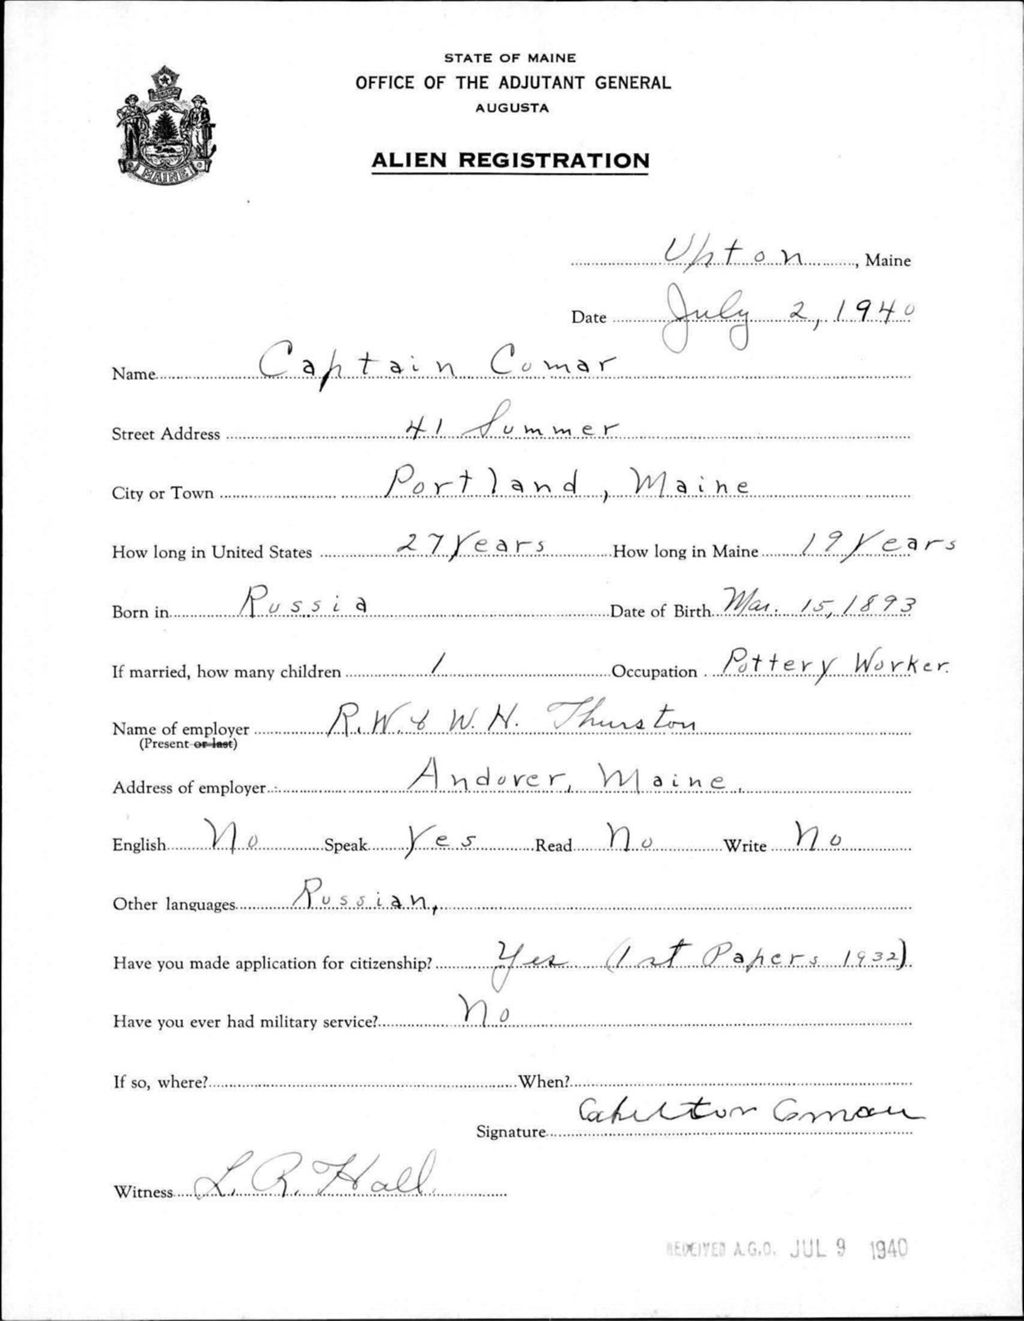 STATE OF MAINE
OFFICE OF THE ADJUTANT GENERAL
AUGUSTA
ALIEN REGISTRATION
MAINE
Upton, Maine
Date July 2, 1940
Name Captain Comar
Street Address 41 Summer
City or Town Portland, Maine
How long in United States 27 Years How long in Maine 19 Years
Born in Russia Date of Birth Mar. 15, 1893
If married, how many children 1 Occupation Pottery Worker.
Name of employer R.W. & W. H. Thurston
(Present or last)
Address of employer Andover, Maine.
English No Speak Yes Read No Write No
Other languages Russian,
Have you made application for citizenship? Yes (1st Papers 1932)
Have you ever had military service? No
If so, where? When?
Signature
Witness L. R. Hall
RECEIVED A.G.O. JUL 9 1940